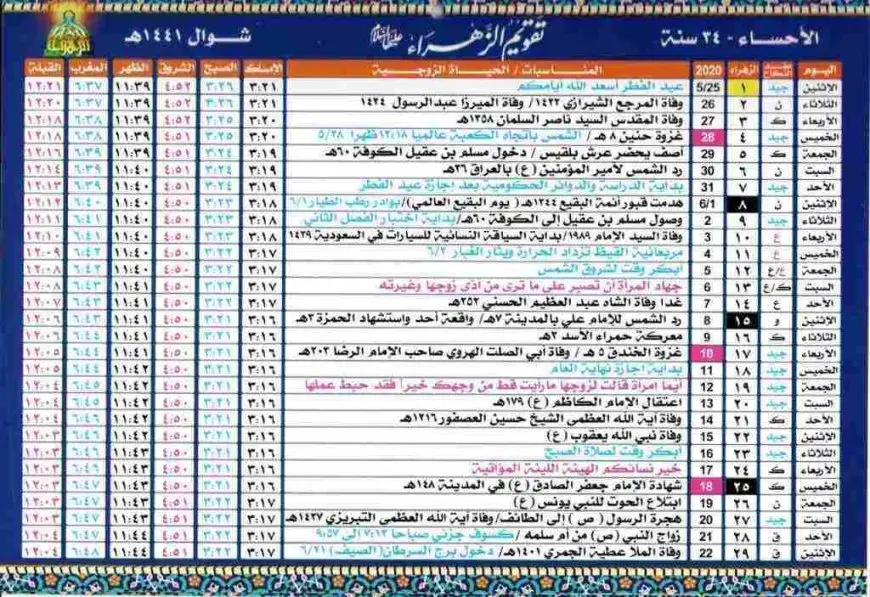 الأحساء - ٣٤ سنة
تقويم الزهراء عليها السلام
شوال ١٤٤١هـ
اليوم عقد النكاح الزهراء 2020 المناسبات / الحياة الزوجية الإمساك الصبح الشروق الظهر المغرب القبلة
الإثنين جيد ١ 5/25 عيد الفطر أسعد الله أيامكم ٣:٢١ ٣:٢٦ ٤:٥٢ ١١:٣٩ ٦:٣٧ ١٢:٢١
الثلاثاء ن ٢ 26 وفاة المرجع الشيرازي ١٤٢٢/ وفاة الميرزا عبدالرسول ١٤٢٤ ٣:٢١ ٣:٢٦ ٤:٥٢ ١١:٣٩ ٦:٣٧ ١٢:٢٠
الأربعاء ك ٣ 27 وفاة المقدس السيد ناصر السلمان ١٣٥٨هـ ٣:٢٠ ٣:٢٥ ٤:٥٢ ١١:٣٩ ٦:٣٨ ١٢:١٩
الخميس جيد ٤ 28 غزوة حنين ٨ هـ/ الشمس باتجاه الكعبة عالميا ١٢:١٨ ظهرا ٥/٢٨ ٣:٢٠ ٣:٢٥ ٤:٥١ ١١:٣٩ ٦:٣٨ ١٢:١٨
الجمعة ك ٥ 29 آصف يحضر عرش بلقيس / دخول مسلم بن عقيل الكوفة ٦٠هـ ٣:١٩ ٣:٢٤ ٤:٥١ ١١:٣٩ ٦:٣٩ ١٢:١٦
السبت ن ٦ 30 رد الشمس لأمير المؤمنين (ع) بالعراق ٣٦هـ ٣:١٩ ٣:٢٤ ٤:٥١ ١١:٤٠ ٦:٣٩ ١٢:١٤
الأحد جيد ٧ 31 بداية الدراسة والدوائر الحكومية بعد إجازة عيد الفطر ٣:١٩ ٣:٢٤ ٤:٥١ ١١:٤٠ ٦:٣٩ ١٢:١٣
الإثنين ن ٨ 6/1 هدمت قبور أئمة البقيع ١٣٤٤هـ( يوم البقيع العالمي)/بوادر رطب الطيار ٦/١ ٣:١٨ ٣:٢٣ ٤:٥١ ١١:٤٠ ٦:٤٠ ١٢:١٢
الثلاثاء جيد ٩ 2 وصول مسلم بن عقيل إلى الكوفة ٦٠هـ/بداية اختبار الفصل الثاني ٣:١٨ ٣:٢٣ ٤:٥١ ١١:٤٠ ٦:٤١ ١٢:١١
الأربعاء ع ١٠ 3 وفاة السيد الإمام ١٩٨٩/بداية السياقة النسائية للسيارات في السعودية ١٤٣٩ ٣:١٨ ٣:٢٣ ٤:٥٠ ١١:٤٠ ٦:٤١ ١٢:١٠
الخميس ع ١١ 4 مربعانية القيظ تزداد الحرارة ويثار الغبار ٦/٢ ٣:١٧ ٣:٢٢ ٤:٥٠ ١١:٤٠ ٦:٤٢ ١٢:٠٩
الجمعة ع/ع ١٢ 5 أبكر وقت لشروق الشمس ٣:١٧ ٣:٢٢ ٤:٥٠ ١١:٤٠ ٦:٤٢ ١٢:٠٨
السبت ك/ع ١٣ 6 جهاد المرأة أن تصبر على ما ترى من أذى زوجها وغيرته ٣:١٧ ٣:٢٢ ٤:٥٠ ١١:٤١ ٦:٤٣ ١٢:٠٨
الأحد ع ١٤ 7 غدا وفاة الشاه عبد العظيم الحسني ٢٥٢هـ ٣:١٧ ٣:٢٢ ٤:٥٠ ١١:٤١ ٦:٤٣ ١٢:٠٧
الإثنين و ١٥ 8 رد الشمس للإمام علي بالمدينة ٧هـ/ واقعة أحد واستشهاد الحمزة ٣هـ ٣:١٦ ٣:٢١ ٤:٥٠ ١١:٤١ ٦:٤٣ ١٢:٠٦
الثلاثاء ك ١٦ 9 معركة حمراء الأسد ٣هـ ٣:١٦ ٣:٢١ ٤:٥٠ ١١:٤١ ٦:٤٤ ١٢:٠٦
الأربعاء جيد ١٧ 10 غزوة الخندق ٥ هـ/ وفاة أبي الصلت الهروي صاحب الإمام الرضا ٢٠٣هـ ٣:١٦ ٣:٢١ ٤:٥٠ ١١:٤١ ٦:٤٤ ١٢:٠٥
الخميس جيد ١٨ 11 بداية إجازة نهاية العام ٣:١٦ ٣:٢١ ٤:٥٠ ١١:٤٢ ٦:٤٥ ١٢:٠٥
الجمعة جيد ١٩ 12 أيما امرأة قالت لزوجها مارأيت قط من وجهك خيراً فقد حبط عملها ٣:١٦ ٣:٢١ ٤:٥٠ ١١:٤٢ ٦:٤٥ ١٢:٠٤
السبت جيد ٢٠ 13 اعتقال الإمام الكاظم (ع) ١٧٩هـ ٣:١٦ ٣:٢١ ٤:٥٠ ١١:٤٢ ٦:٤٥ ١٢:٠٤
الأحد ك ٢١ 14 وفاة آية الله العظمى الشيخ حسين العصفور ١٢١٦هـ ٣:١٦ ٣:٢١ ٤:٥٠ ١١:٤٢ ٦:٤٦ ١٢:٠٤
الإثنين جيد ٢٢ 15 وفاة نبي الله يعقوب (ع) ٣:١٦ ٣:٢١ ٤:٥٠ ١١:٤٢ ٦:٤٦ ١٢:٠٣
الثلاثاء جيد ٢٣ 16 أبكر وقت لصلاة الصبح ٣:١٦ ٣:٢١ ٤:٥٠ ١١:٤٢ ٦:٤٦ ١٢:٠٣
الأربعاء ك ٢٤ 17 خير نسائكم الهينة اللينة المؤاتية ٣:١٦ ٣:٢١ ٤:٥٠ ١١:٤٣ ٦:٤٧ ١٢:٠٣
الخميس ك ٢٥ 18 شهادة الإمام جعفر الصادق (ع) في المدينة ١٤٨هـ ٣:١٧ ٣:٢٢ ٤:٥٠ ١١:٤٣ ٦:٤٧ ١٢:٠٣
الجمعة ن ٢٦ 19 ابتلاع الحوت للنبي يونس (ع) ٣:١٧ ٣:٢٢ ٤:٥١ ١١:٤٣ ٦:٤٧ ١٢:٠٣
السبت جيد ٢٧ 20 هجرة الرسول (ص) إلى الطائف/وفاة آية الله العظمى التبريزي ١٤٢٧هـ ٣:١٧ ٣:٢٢ ٤:٥١ ١١:٤٣ ٦:٤٧ ١٢:٠٣
الأحد ق ٢٨ 21 زواج النبي (ص) من أم سلمه /كسوف جزئي صباحا ٧:١٣ إلى ٩:٥٧ ٣:١٧ ٣:٢٢ ٤:٥١ ١١:٤٤ ٦:٤٧ ١٢:٠٤
الإثنين ق ٢٩ 22 وفاة الملا عطية الجمري ١٤٠١هـ/ دخول برج السرطان (الصيف) ٦/٢١ ٣:١٧ ٣:٢٢ ٤:٥١ ١١:٤٤ ٦:٤٨ ١٢:٠٤